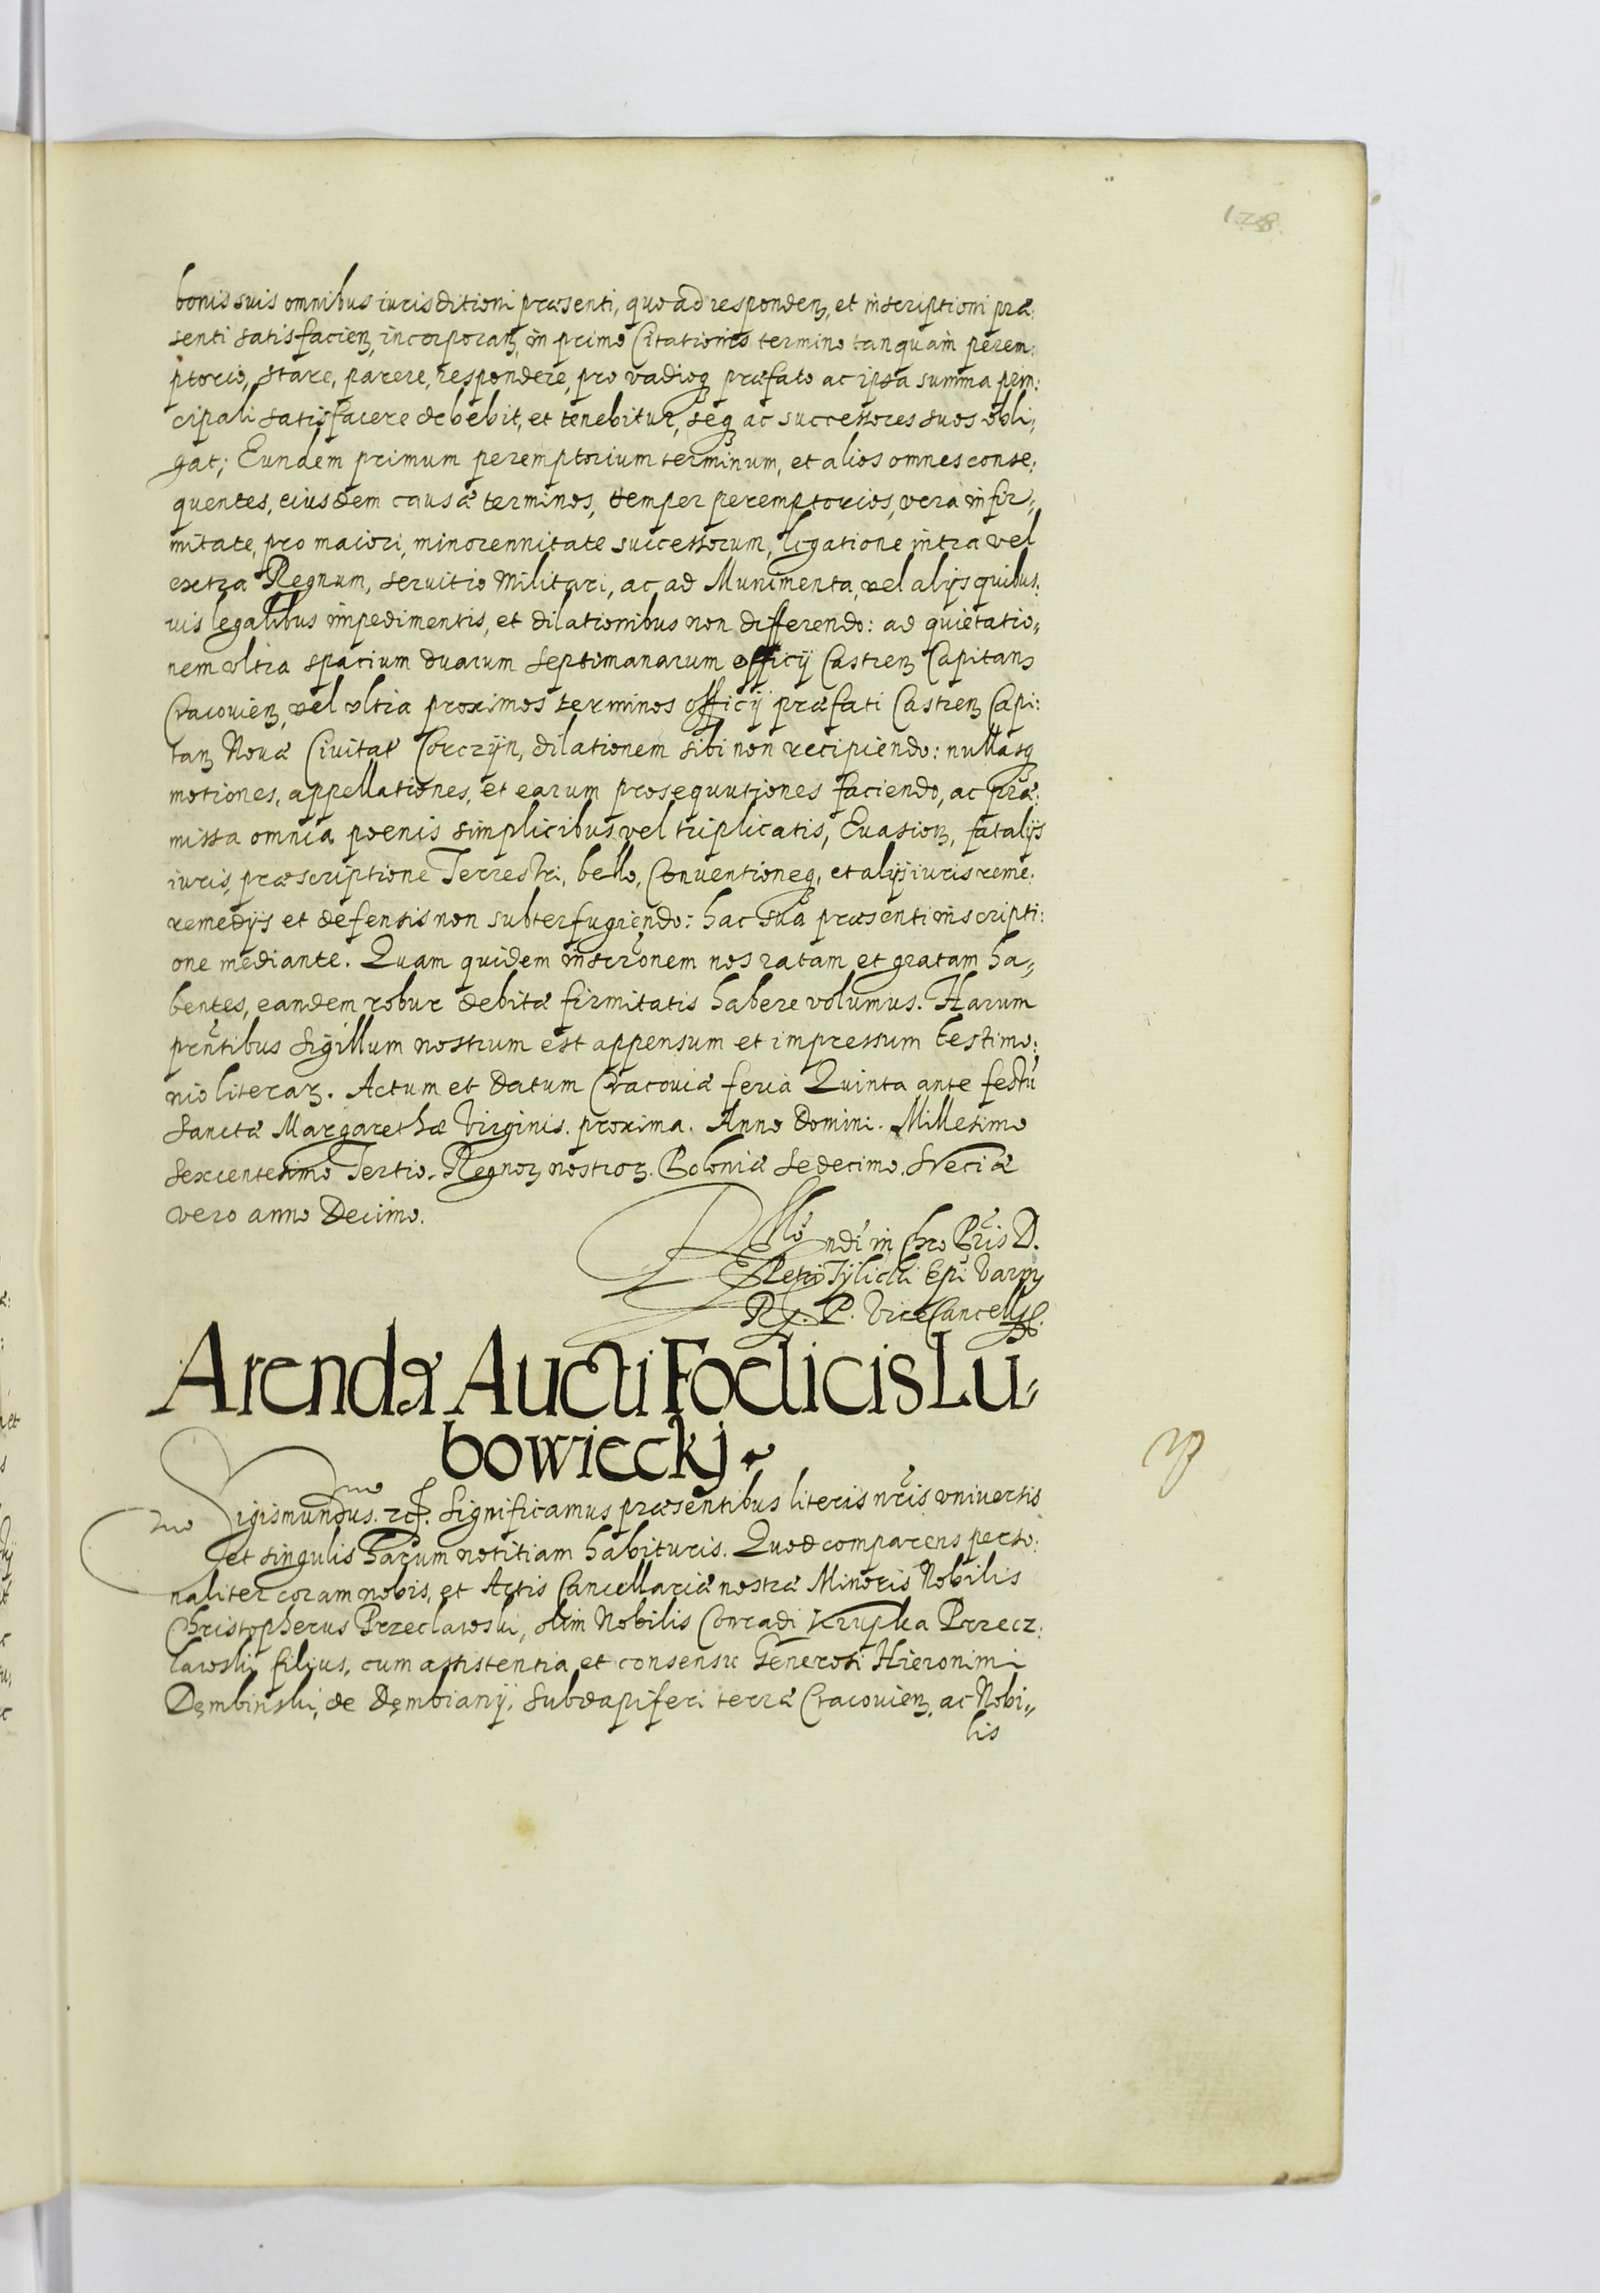 128.
bonis suis omnibus iurisditioni præsenti, quo ad respondenȝ, et inscriptioni præ:
senti satisfacienȝ, incorporanȝ, in primo Citationis termino tanquam perem:
ptorio, stare, parere, respondere, pro vadioqȝ præfato ac ipsa summa prin:
cipali satisfacere debebit, et tenebitur, seqȝ ac successores suos obli:
gat; Eundem primum peremptorium terminum, et alios omnes conse:
quentes, eiusdem causæ terminos, semper peremptorios, vera infir:
mitate, pro maiori, minorennitate successorum, legatione intra vel
extra Regnum, seruitio Militari, ac ad Munimenta, vel alijs quibus:
vis legalibus impedimentis, et dilationibus non differendo: ad quietatio:
nem vltra spatium duarum septimanarum officij Castrenȝ Capitanȝ
Cracouienȝ, vel vltra proximos terminos officij præfati Castrenȝ Capi:
tanȝ Nouæ Ciuitatȝ Corczyn, dilationem sibi non recipiendo: nullasqȝ
motiones, appellationes, et earum prosequutiones faciendo, ac præ:
missa omnia poenis simplicibus vel triplicatis, Euasionȝ, fatalijs
iuris, præscriptione Terrestri, bello, Conuentioneqȝ, et alijs iuris reme:
remedijs et defensis non subterfugiendo: hac sua præsenti inscripti:
one mediante. Quam quidem inscrõnem nos ratam et gratam ha:
bentes, eandem robur debitæ firmitatis habere volumus. Harum
prñtibus Sigillum nostrum est appensum et impressum testimo:
nio literarȝ. Actum et datum Cracouiæ feria Quinta ante festũ
Sanctæ Margarethæ Virginis. proxima. Anno Domini. Millesimo
Sexcentesimo Tertio. Regnorȝ nostrorȝ. Poloniæ Sedecimo. Sveciæ
vero anno Decimo.
Rllõ ndi in Chro Pris D.
Petri Tylicki Epi Varmȝ
R. P. Vice Cancellȝ
Arendæ Aucti Foelicis Lu:
bowieckj.
Sigismundus. rcȝ. Significamus præsentibus literis nr̃is vniuersis
et singulis harum notitiam habituris. Quod comparens perso:
naliter coram nobis, et Actis Cancellariæ nostræ Minoris Nobilis
Christopherus Przeclawski, olim Nobilis Conradi Krupka Przecz:
lawskij filius, cum assistentia et consensu Generosi Hieronimi
Dęmbinski, de Dęmbianÿ, Subdapiferi terræ Cracouienȝ, ac Nobi:
lis